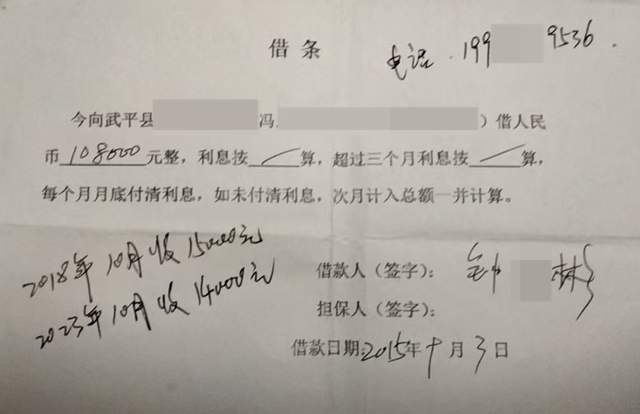 借条
电话.199 9536.
今向武平县 冯 ）借人民
币108000元整，利息按／算，超过三个月利息按／算，
每个月月底付清利息，如未付清利息，次月计入总额一并计算。
2018年10月收15000元
2023年10月收14000元
借款人（签字）：钟 彬
担保人（签字）：
借款日期：2015年 月3日